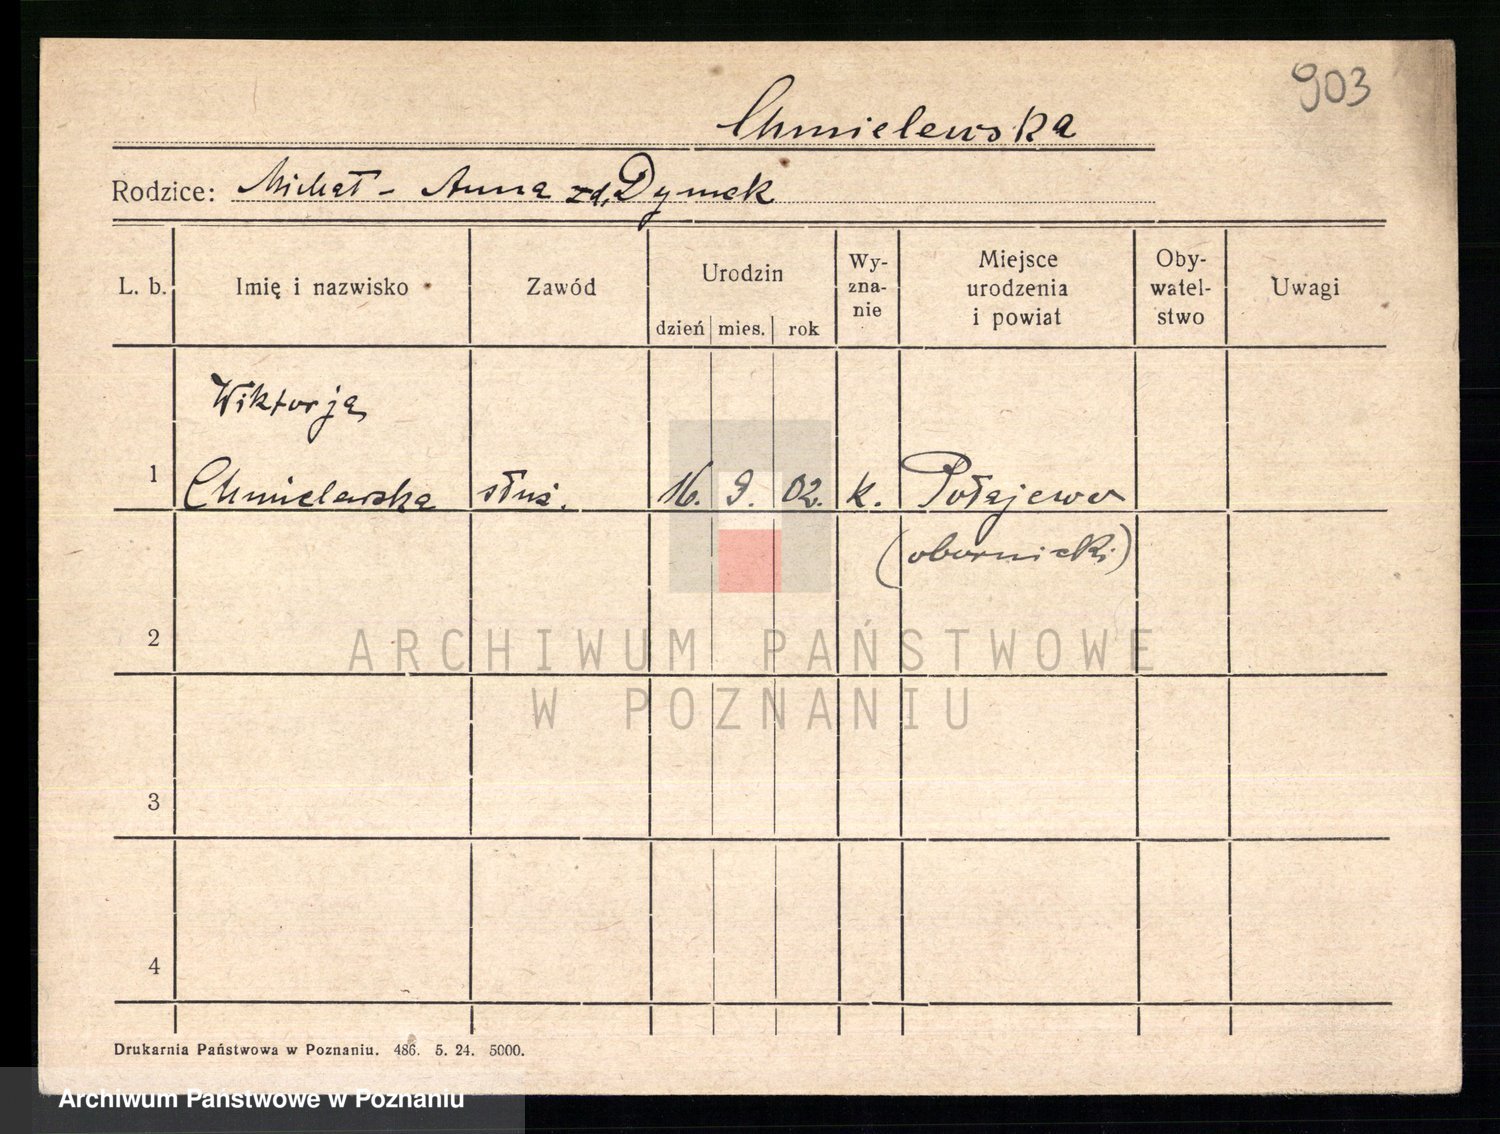 903
Chmielewska
Rodzice: Michał - Anna zd. Dymek
L. b. Imię i nazwisko Zawód Urodzin dzień mies. rok Wy-zna-nie Miejsce urodzenia i powiat Oby-watel-stwo Uwagi
Wiktorja
1 Chmielewska służ. 16. 9. 02. k. Połajewo
(obornicki)
2
ARCHIWUM PAŃSTWOWE
W POZNANIU
3
4
Drukarnia Państwowa w Poznaniu. 486. 5. 24. 5000.
Archiwum Państwowe w Poznaniu